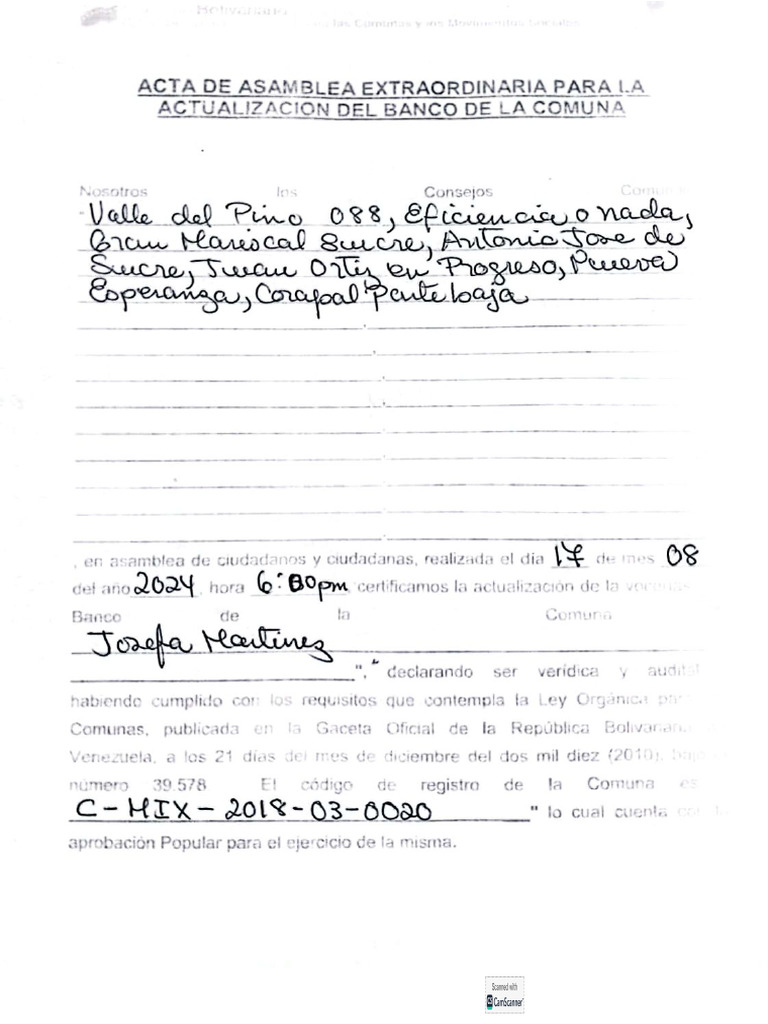 Bolivariano
las Comunas y los Movimientos Sociales
ACTA DE ASAMBLEA EXTRAORDINARIA PARA LA
ACTUALIZACION DEL BANCO DE LA COMUNA
Nosotros los Consejos
Valle del Pino 088, Eficiencia o nada,
Gran Mariscal Sucre, Antonio Jose de
Sucre, Juan Ortiz en Progreso, Nueva
Esperanza, Corapal Parte baja
, en asamblea de ciudadanos y ciudadanas, realizada el día 17 de mes 08
del año 2024 hora 6:00pm certificamos la actualización de la
Banco de la Comuna
Josefa Martinez
", declarando ser verídica y
habiendo cumplido con los requisitos que contempla la Ley Orgánica
Comunas, publicada en la Gaceta Oficial de la República Bolivariana
Venezuela, a los 21 días del mes de diciembre del dos mil diez (2010),
número 39.578 El código de registro de la Comuna es
C-MIX-2018-03-0020 " lo cual cuenta
aprobación Popular para el ejercicio de la misma.
Scanned with
CamScanner